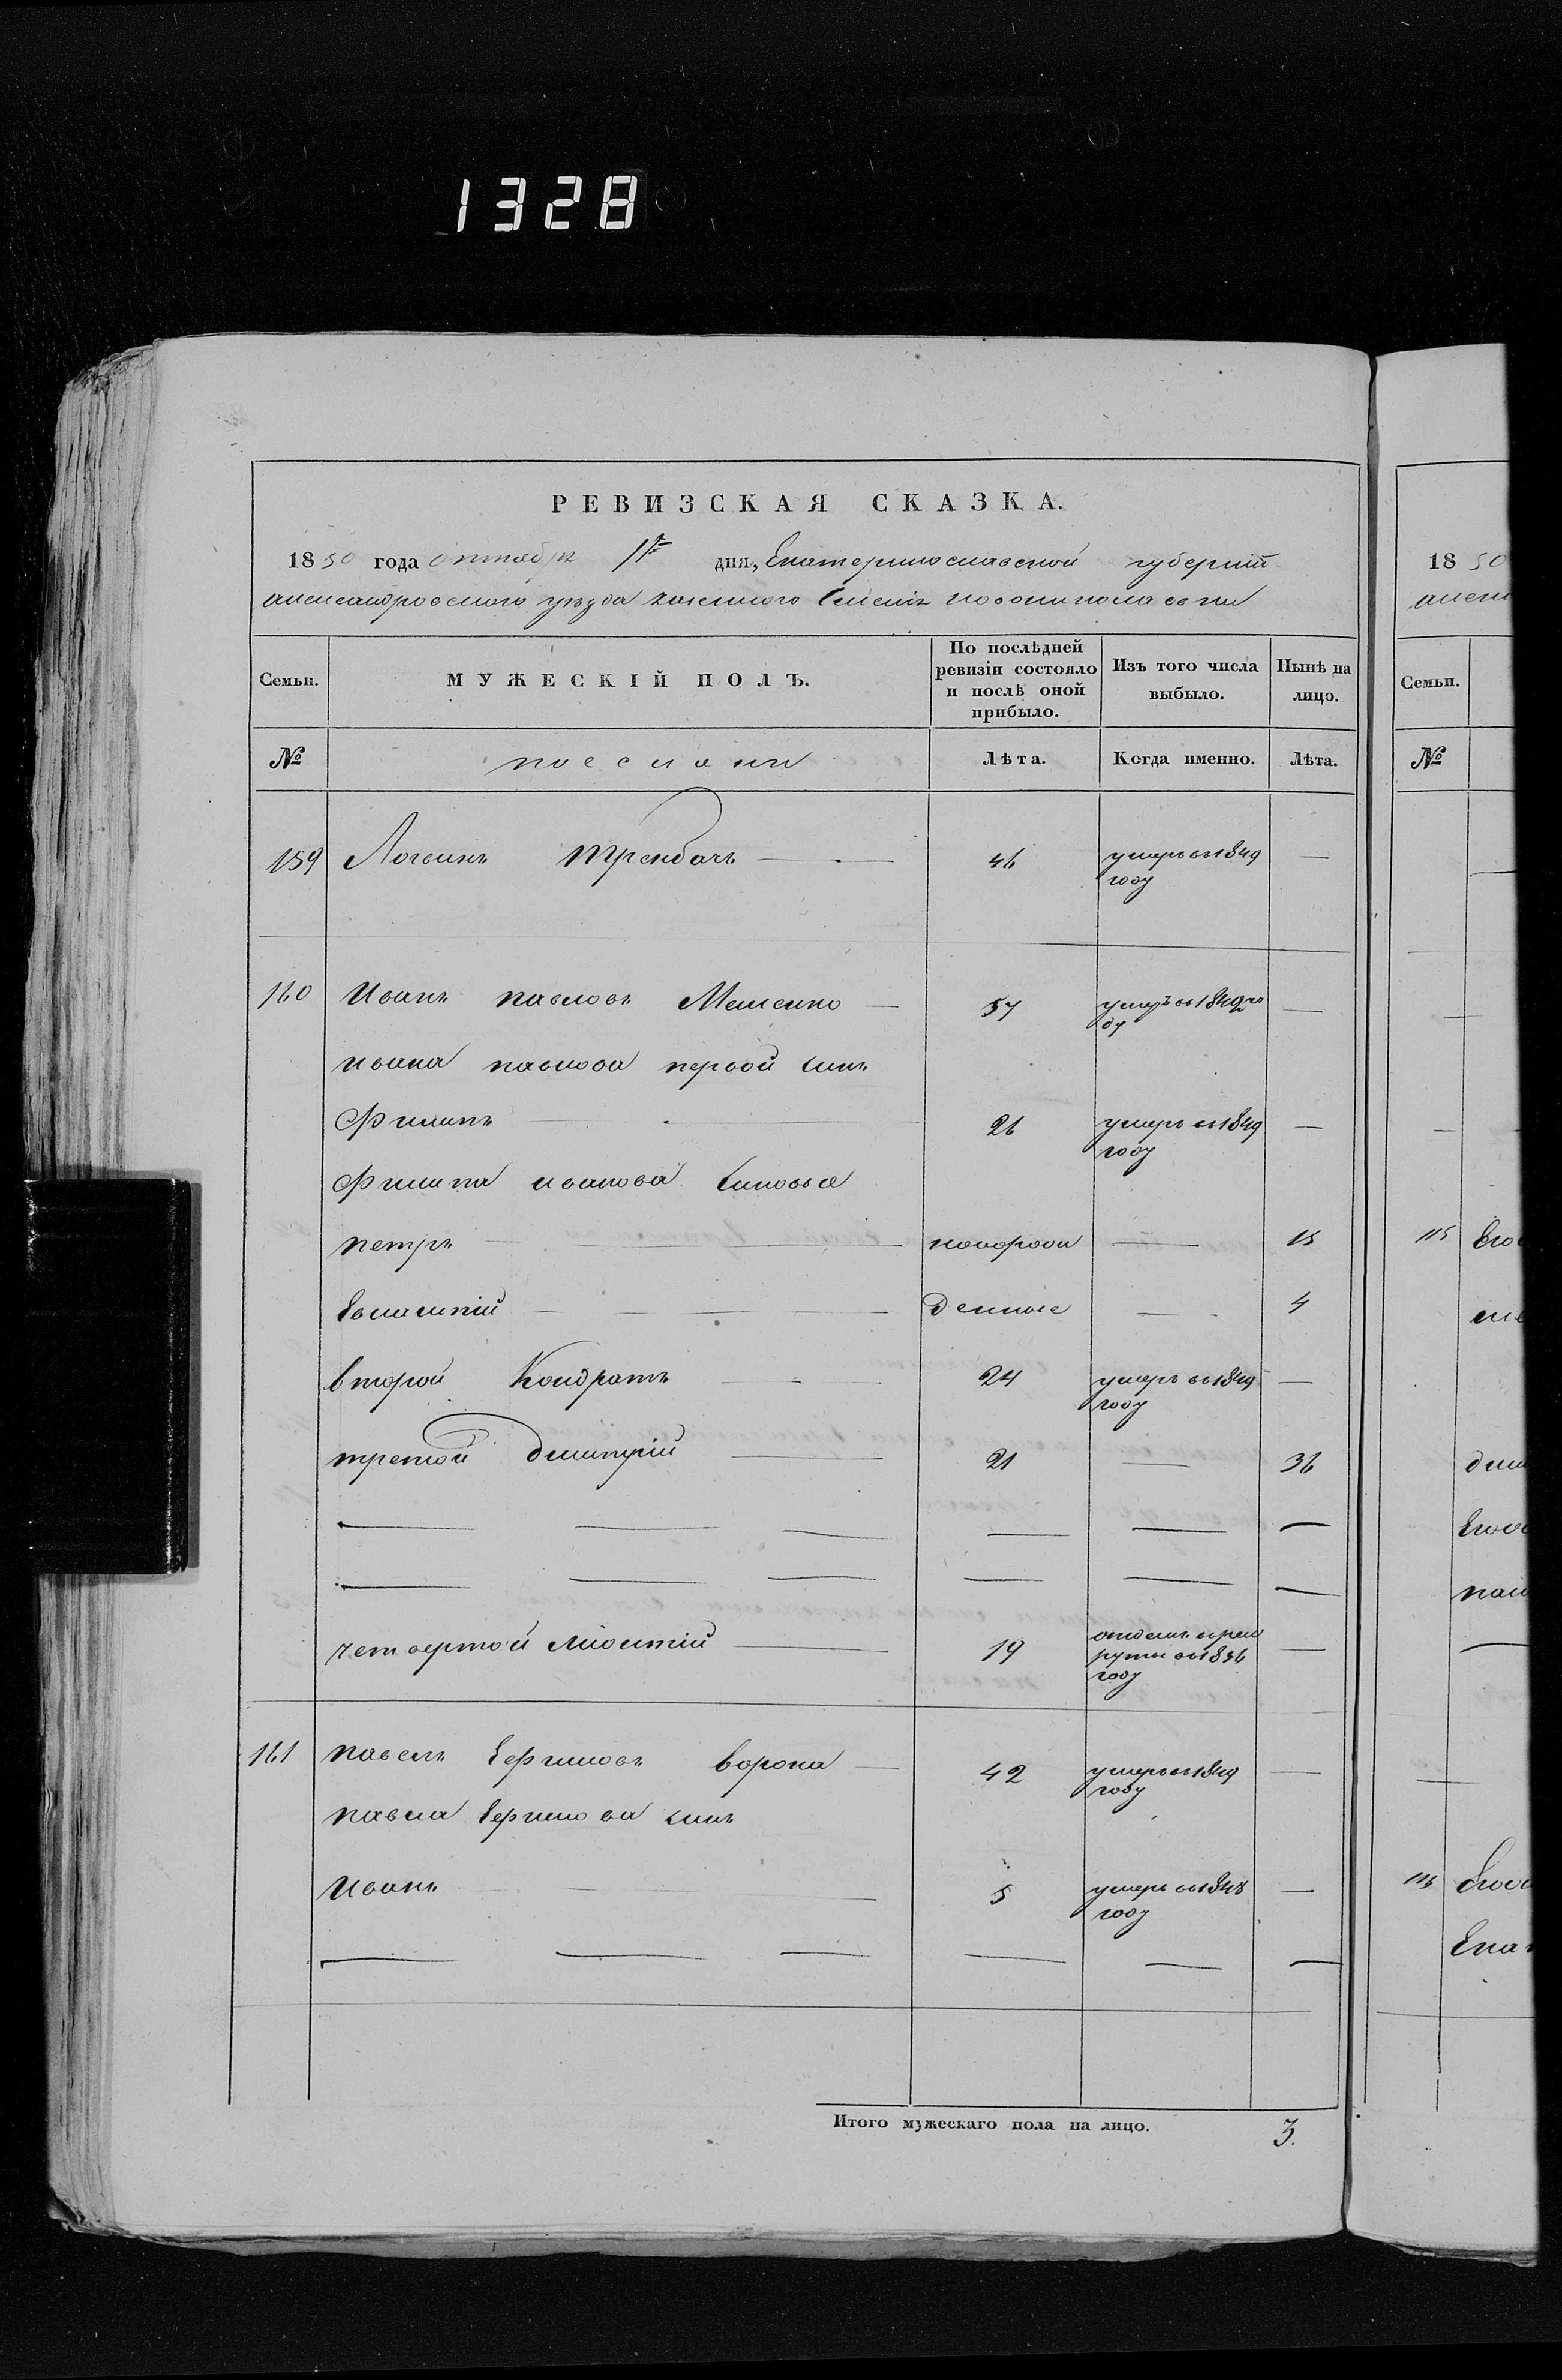 1328
РЕВИЗСКАЯ СКАЗКА.
1850 года октября дня, Екатеринославской губернии
александровского уезда казенного селения новониколаевки
Семьи. МУЖЕСКІЙ ПОЛЪ. По послѣдней ревизіи состояло и послѣ оной прибыло. Изъ того числа выбыло. Нынѣ на лицо.
№ поселяни Лѣта. Когда именно. Лѣта.
159 Логвинъ трембачъ 46 умеръ въ 1849 году —
160 Иванъ павловъ 57 умеръ въ 1849 году —
ивана павлова первой синъ
Филипъ 26 умеръ въ 1849 году —
Филипа иванова синовья
петръ новорож — 15
денные — 4
второй Кондратъ 24 умеръ въ 1849 году —
третой дмитрій 21 — 36
четвертой 19 отданъ в рекруты въ 1836 году —
161 павелъ Ефимовъ ворона 42 умеръ въ 1849 году —
павла Ефимова синъ
Иванъ 5 умеръ въ 1848 году —
Итого мужескаго пола на лицо. 3.
1850
Семьи.
№
115